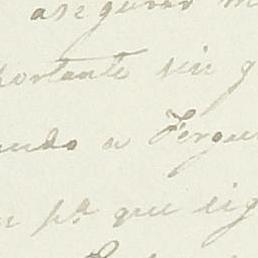 asegurar
portante sin
ando a Fergu
pª que sig